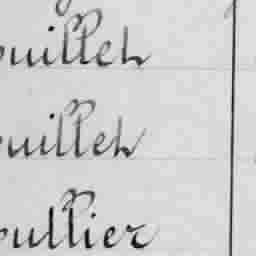 ouillet
ouillet
oullier